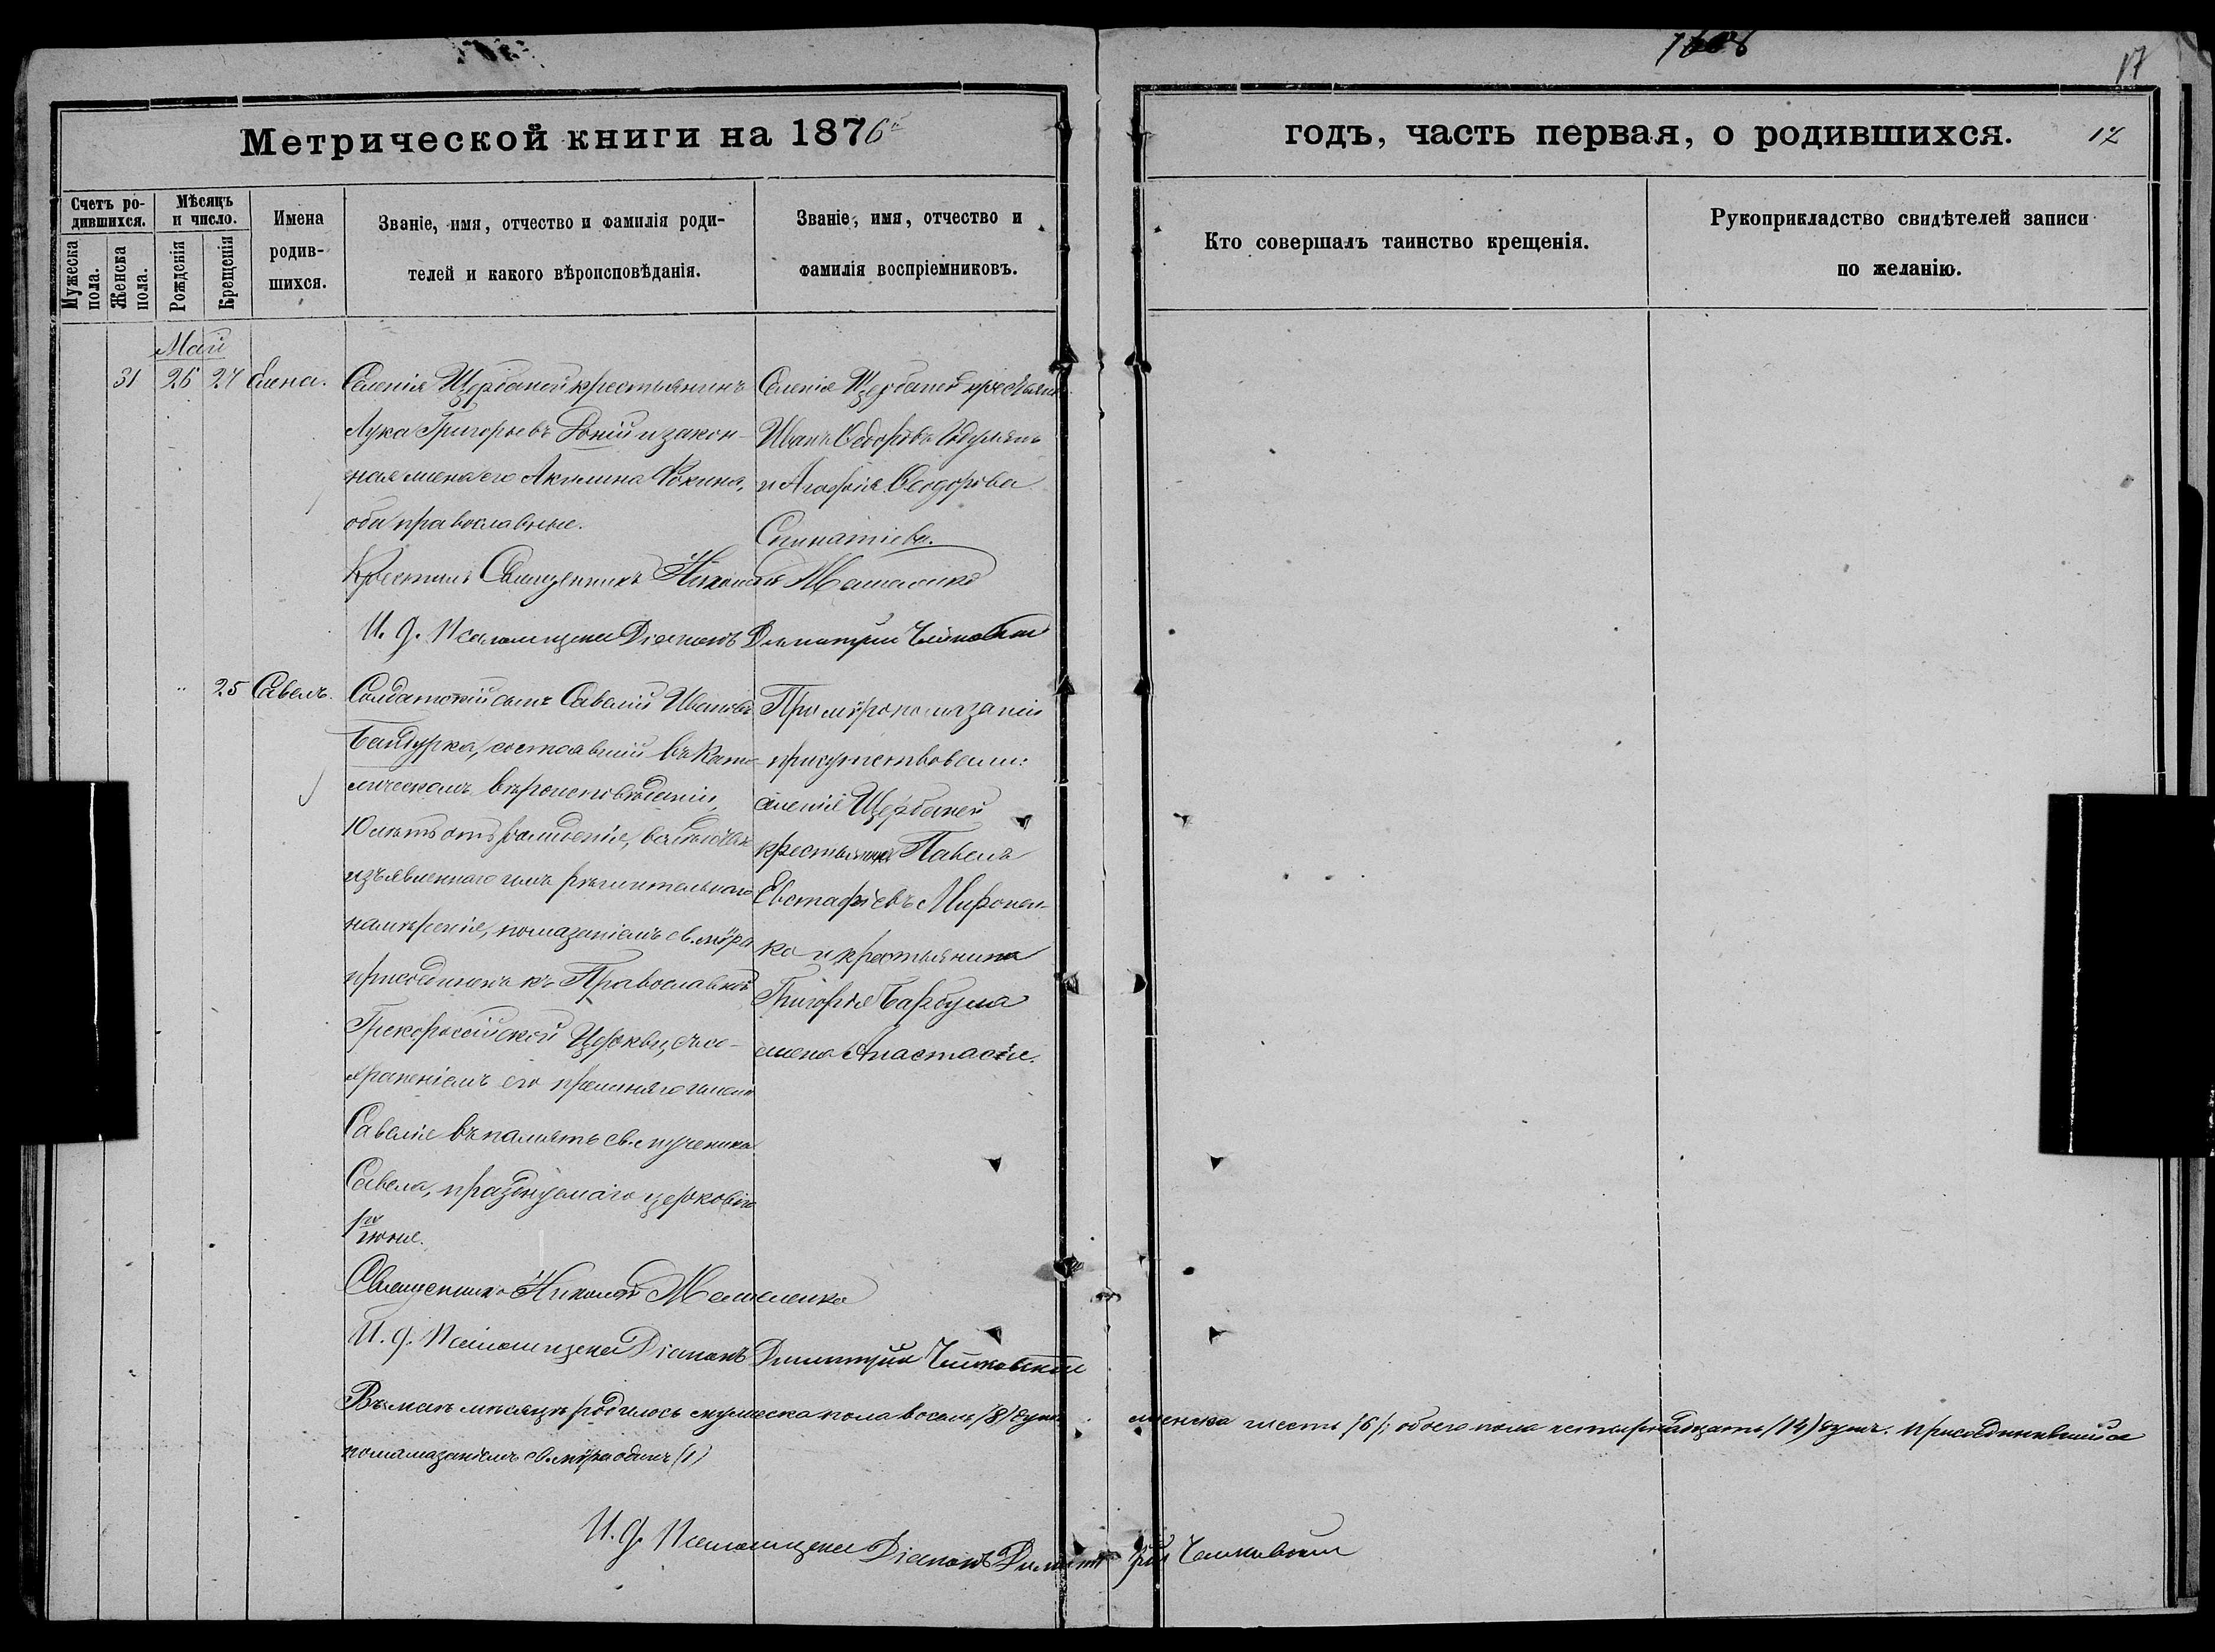 17
Метрической книги на 1876й
годъ, часть первая, о родившихся. 17
Счетъ ро-
дившихся.
Мужеска
пола.
Женска
пола.
Мѣсяцъ
и число.
Рожденія
Крещенія
Имена
родив-
шихся.
Званіе, имя, отчество и фамилія роди-
телей и какого вѣроисповѣданія.
Званіе, имя, отчество и
фамилія воспріемниковъ.
Кто совершалъ таинство крещенія.
Рукоприкладство свидѣтелей записи
по желанію.
Май
31 26 27 Елена.
Селенія Щербаней крестьянинъ
Лука Григорьевъ и закон-
ная жена его Акилина Фокина,
оба православные.
Селенія Щербаней крестьянинъ
Иванъ Ѳедоровъ
и Агафія Ѳеодорова
Крестилъ Священникъ Николай
И. д. Псаломщика Діаконъ Димитрій
25 Савелъ.
Солдатскій сынъ Савелій Ивановъ
Бандурка, состоявшій въ Като-
лическомъ вѣроисповѣданіи,
10 лѣтъ отъ рожденія, вслѣдствіе
изъявленнаго имъ рѣшительнаго
намѣренія, помазаніемъ св. мѵра
присоединенъ къ Православной
Грекороссійской Церкви, съ со-
храненіемъ его прежняго имени
Савелія въ память св. мученика
Савела, празднуемаго церковію
17го іюня.
При мѵропомазаніи
присутствовали:
селенія Щербаней
крестьянинъ Павелъ
Евстафіевъ Миронен-
ко и крестьянина
Григорія Барбула
жена Анастасія.
Священникъ Николай
И. д. Псаломщика Діаконъ Димитрій
Въ маѣ мѣсяцѣ родилось мужеска пола восемь /8/ душъ женска шесть /6/; обоего пола четырнадцать /14/ душъ. Присоединившійся
помазаніемъ св. мѵра одинъ (1)
И. д. Псаломщика Діаконъ Димитрій